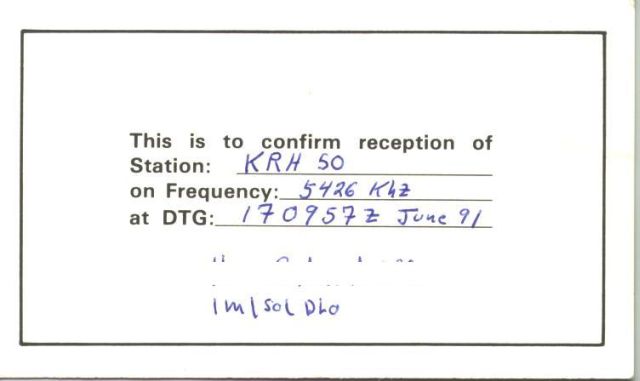 This is to confirm reception of
Station: KRH 50
on Frequency: 5426 Khz
at DTG: 170957Z June 91